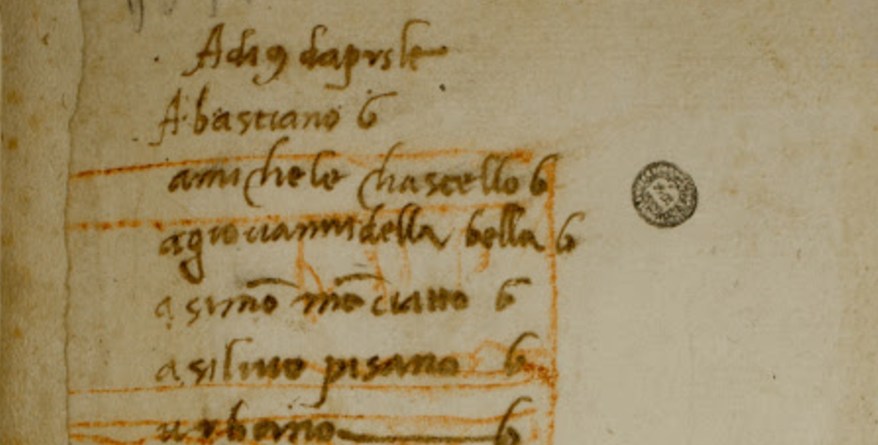 Adi 9 daprile
A bastiano 6
a michele chastello 6
a giovanni della bella 6
a simō mōciatto 6
a silvio pisano 6
urbano 6